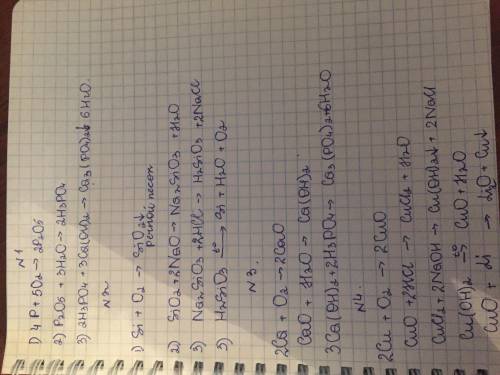 N1
1) 4P + 5O2 → 2P2O5
2) P2O5 + 3H2O → 2H3PO4
3) 2H3PO4 + 3Ca(OH)2 → Ca3(PO4)2↓ + 6H2O.
N2
1) Si + O2 → SiO2↓
речной песок
2) SiO2 + 2NaO → Na2SiO3 + H2O
3) Na2SiO3 + 2HCl → H2SiO3 + 2NaCl
3) H2SiO3 t° → Si + H2O + O2
N3.
2Ca + O2 → 2CaO
CaO + H2O → Ca(OH)2
3Ca(OH)2 + 2H3PO4 → Ca3(PO4)2 + 6H2O
N4.
2Cu + O2 → 2CuO
CuO + 2HCl → CuCl2 + H2O
CuCl2 + 2NaOH → Cu(OH)2↓ + 2NaCl
Cu(OH)2 t° → CuO + H2O
CuO + → + Cu↓